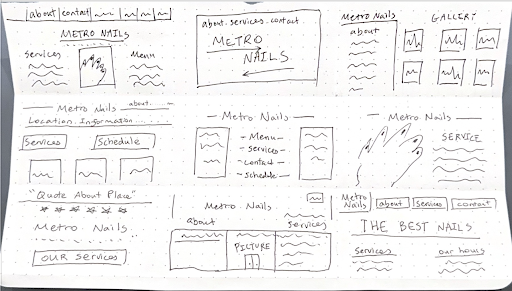 about contact
METRO NAILS
Services Menu
about.services.contact
METRO
NAILS
Metro Nails GALLERY
about
Metro Nails about
Location.Information
Services Schedule
Metro Nails
Menu
Services
Contact
Schedule
Metro Nails
SERVICE
"Quote About Place"
Metro Nails
OUR Services
Metro Nails
about Services
PICTURE
Metro Nails about Services contact
THE BEST NAILS
Services our hours